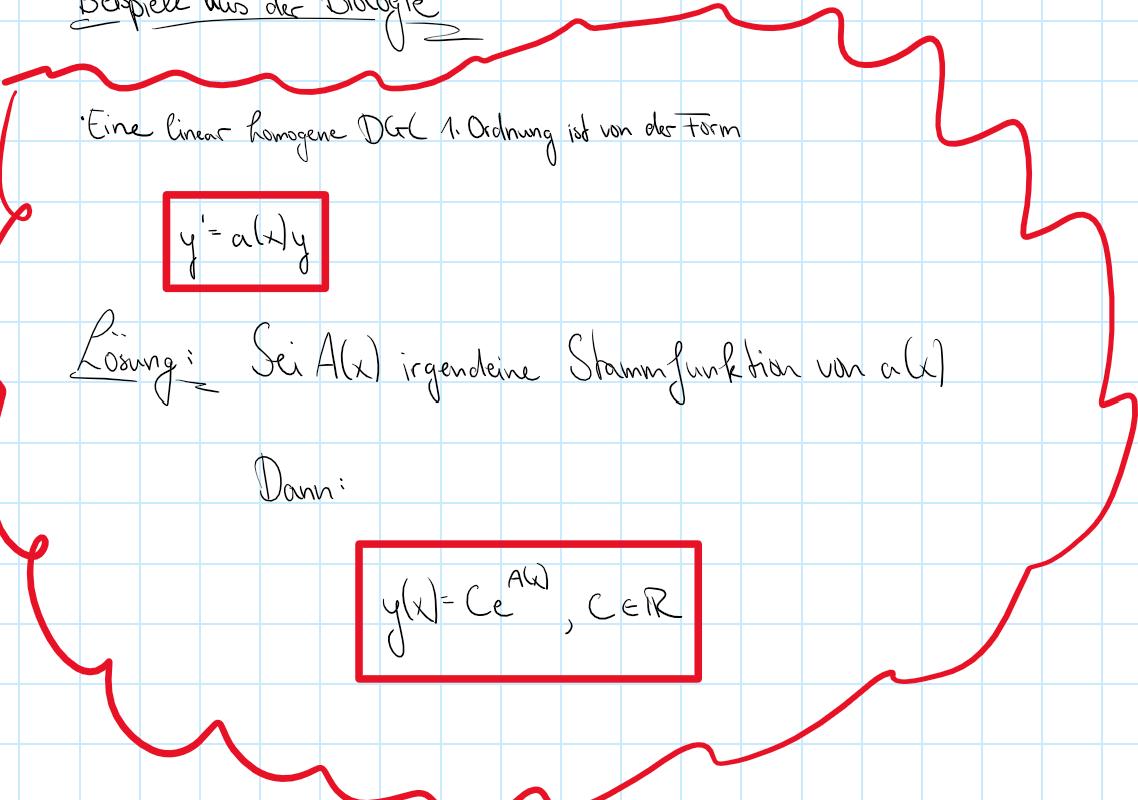 Beispiele aus der Biologie
· Eine linear homogene DGL 1. Ordnung ist von der Form
y' = a(x)y
Lösung: Sei A(x) irgendeine Stammfunktion von a(x)
Dann:
y(x) = Ce^{A(x)}, C ∈ ℝ